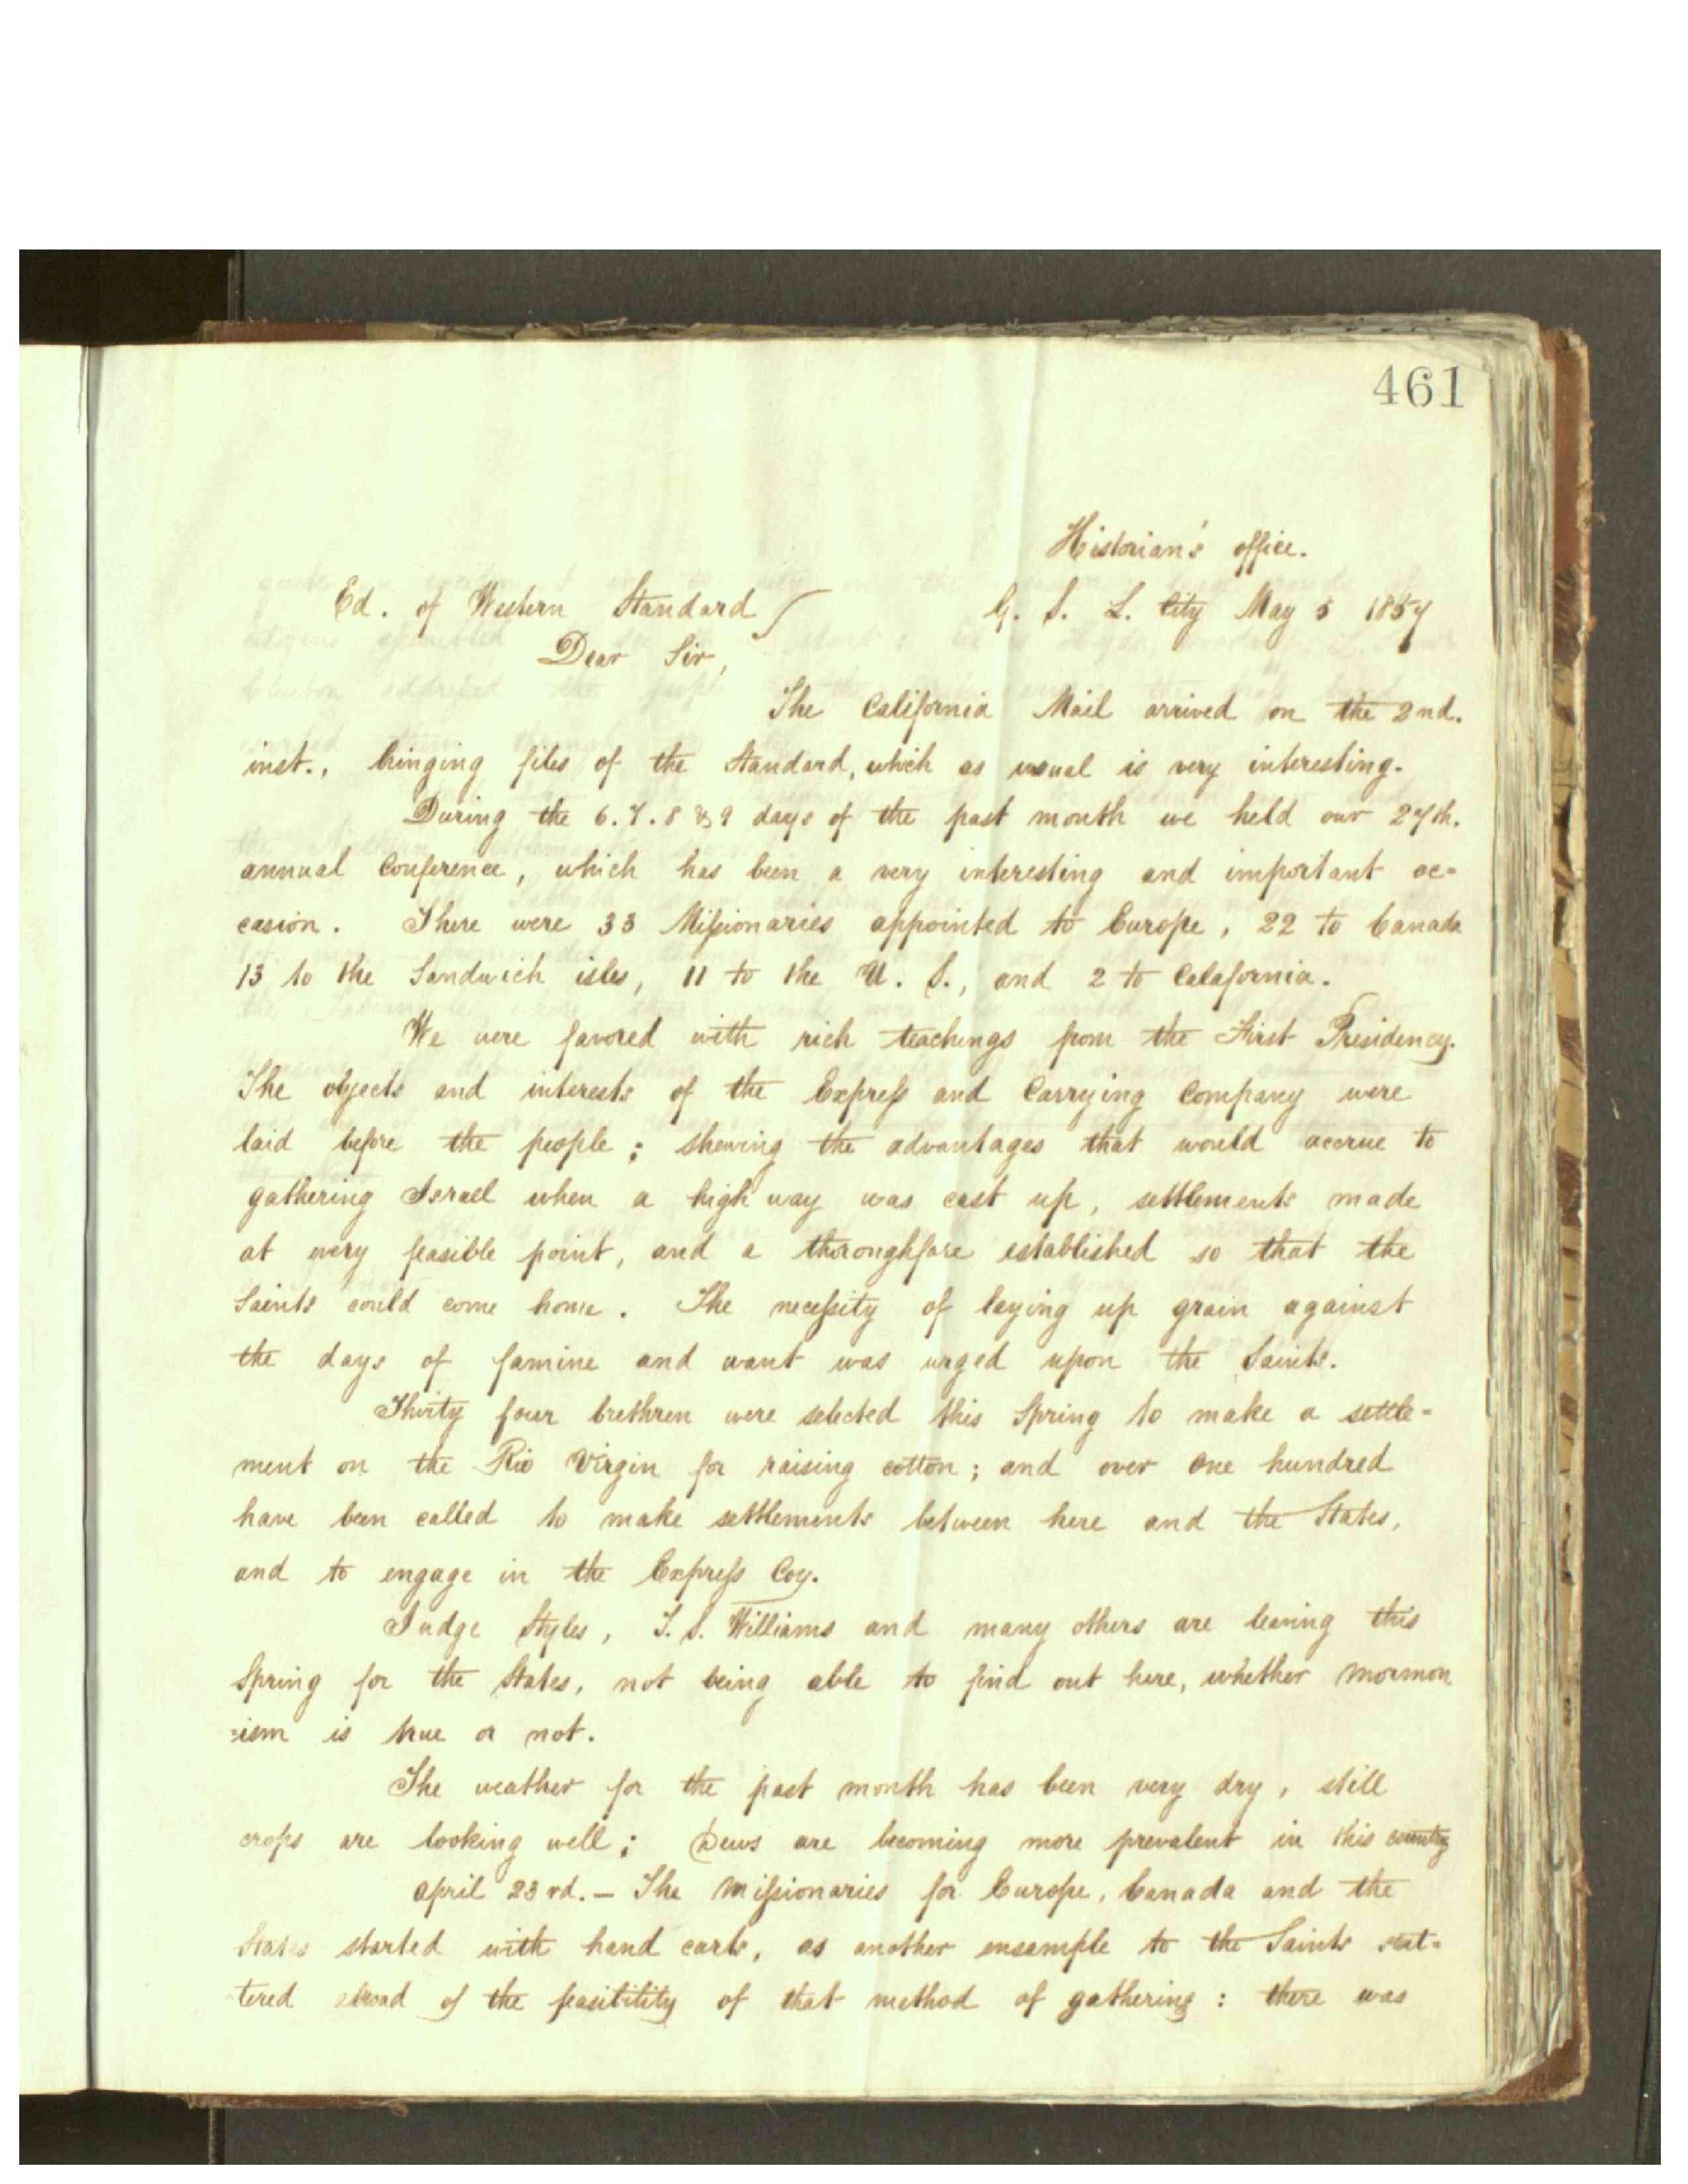 461
Historian's office.
Ed. of Western Standard G. S. L. City May 5 1857
Dear Sir,
The California Mail arrived on the 2nd.
inst., bringing files of the Standard, which as usual is very interesting.
During the 6. 7. 8 & 9 days of the past month we held our 27th.
annual Conference, which has been a very interesting and important oc-
casion. There were 33 Missionaries appointed to Europe, 22 to Canada
13 to the Sandwich isles, 11 to the U. S., and 2 to Calafornia.
We were favored with rich teachings from the First Presidency.
The objects and interests of the Express and Carrying Company were
laid before the people; shewing the advantages that would accrue to
gathering Israel when a high way was cast up, settlements made
at every feasible point, and a thoroughfare established so that the
Saints could come home. The necessity of laying up grain against
the days of famine and want was urged upon the Saints.
Thirty four brethren were selected this Spring to make a settle-
ment on the Rio Virgin for raising cotton; and over one hundred
have been called to make settlements between here and the States,
and to engage in the Express Coy.
Judge Styles, T. S. Williams and many others are leaving this
Spring for the States, not being able to find out here, whether mormon
=ism is true or not.
The weather for the past month has been very dry, still
crops are looking well; Dews are becoming more prevalent in this country
April 23rd. — The Missionaries for Europe, Canada and the
States started with hand carts, as another ensample to the Saints scat-
tered abroad of the feasibility of that method of gathering: there was